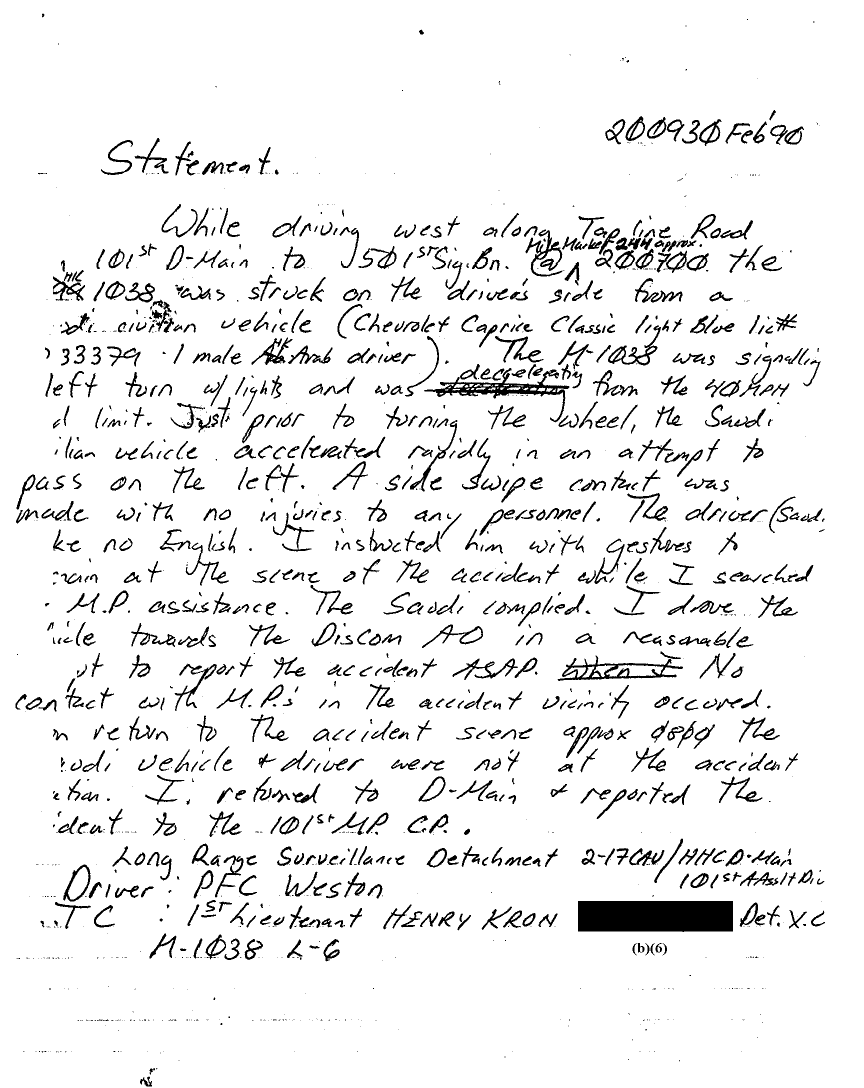 200930 Feb '90
Statement.
While driving west along Tapline Road
101st D-Main to 501st Sig. Bn. @ Mile Marker 244 approx. 200700 the
1038 was struck on the driver's side from a
civilian vehicle (Chevrolet Caprice Classic light Blue lic#
33379 · 1 male Arab driver). The M-1038 was signalling
left turn w/ lights and was deccelerating from the 40 MPH
d limit. Just prior to turning the wheel, the Saudi
ilian vehicle accelerated rapidly in an attempt to
pass on the left. A side swipe contact was
made with no injuries to any personnel. The driver (Saudi
ke no English. I instructed him with gestures to
main at the scene of the accident while I searched
M.P. assistance. The Saudi complied. I drove the
icle towards the Discom AO in a reasonable
pt to report the accident ASAP. When I No
contact with M.P.'s in the accident vicinity occured.
n return to the accident scene approx 0800 the
udi vehicle + driver were not at the accident
ation. I. returned to D-Main + reported the
ident to the 101st M.P. C.P.
Long Range Surveillance Detachment 2-17CAV/HHC D-Main
101st AAslt Div
Driver: PFC Weston
TC : 1ST Lieutenant HENRY KRON Det. X.O
M-1038 L-6
(b)(6)